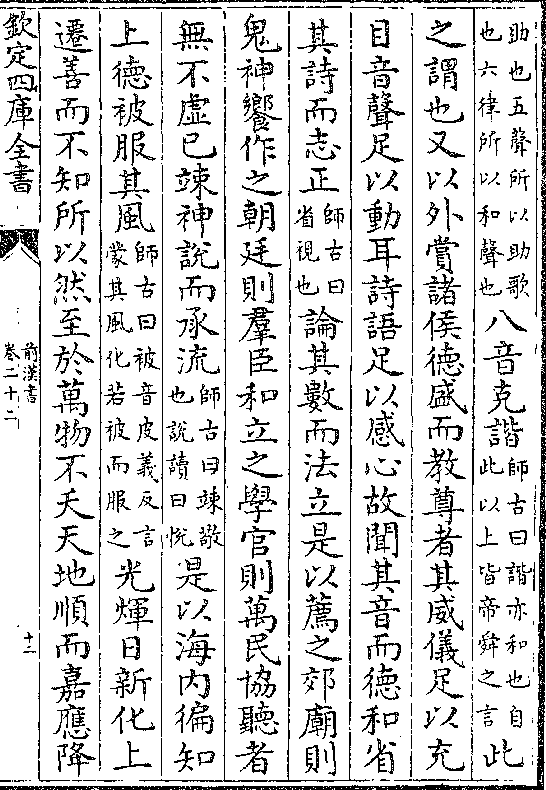 助也五聲所以助歌也六律所以和聲也八音克諧師古曰諧亦和也自此以上皆帝舜之言此
之謂也又以外賞諸侯德盛而教尊者其威儀足以充
目音聲足以動耳詩語足以感心故聞其音而德和省
其詩而志正師古曰省視也論其數而法立是以薦之郊廟則
鬼神饗作之朝廷則羣臣和立之學官則萬民協聽者
無不虛已竦神說而承流師古曰竦敬也說讀曰悅是以海内徧知
上德被服其風師古曰被音皮義反言蒙其風化若被而服之光煇日新化上
遷善而不知所以然至於萬物不夭天地順而嘉應降
欽定四庫全書
前漢書
卷二十二
十二